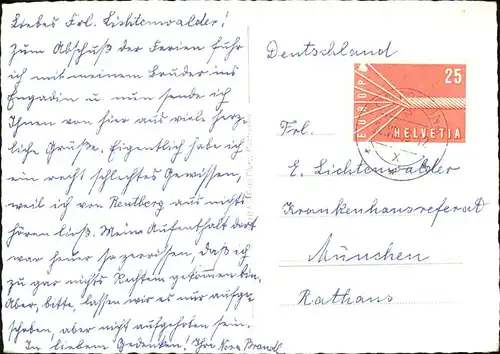 Liebes Frl. Lichtenwalder!
Zum Abschluß der Ferien fuhr
ich mit meinem Bruder ins
Engadin u. nun sende ich
Ihnen von hier aus viele herz-
liche Grüße. Eigentlich habe ich
ein recht schlechtes Gewissen,
weil ich von aus nichts
hören ließ. Mein Aufenthalt dort
war heuer so zerrissen, daß ich
zu gar nichts Rechtem gekommen bin.
Aber, bitte, lassen wir es nur aufge-
schoben, aber nicht aufgehoben sein.
In liebem Gedenken! Ihre
Deutschland
25
EUROPA
HELVETIA
Frl.
E. Lichtenwalder
Krankenhausreferat
München
Rathaus